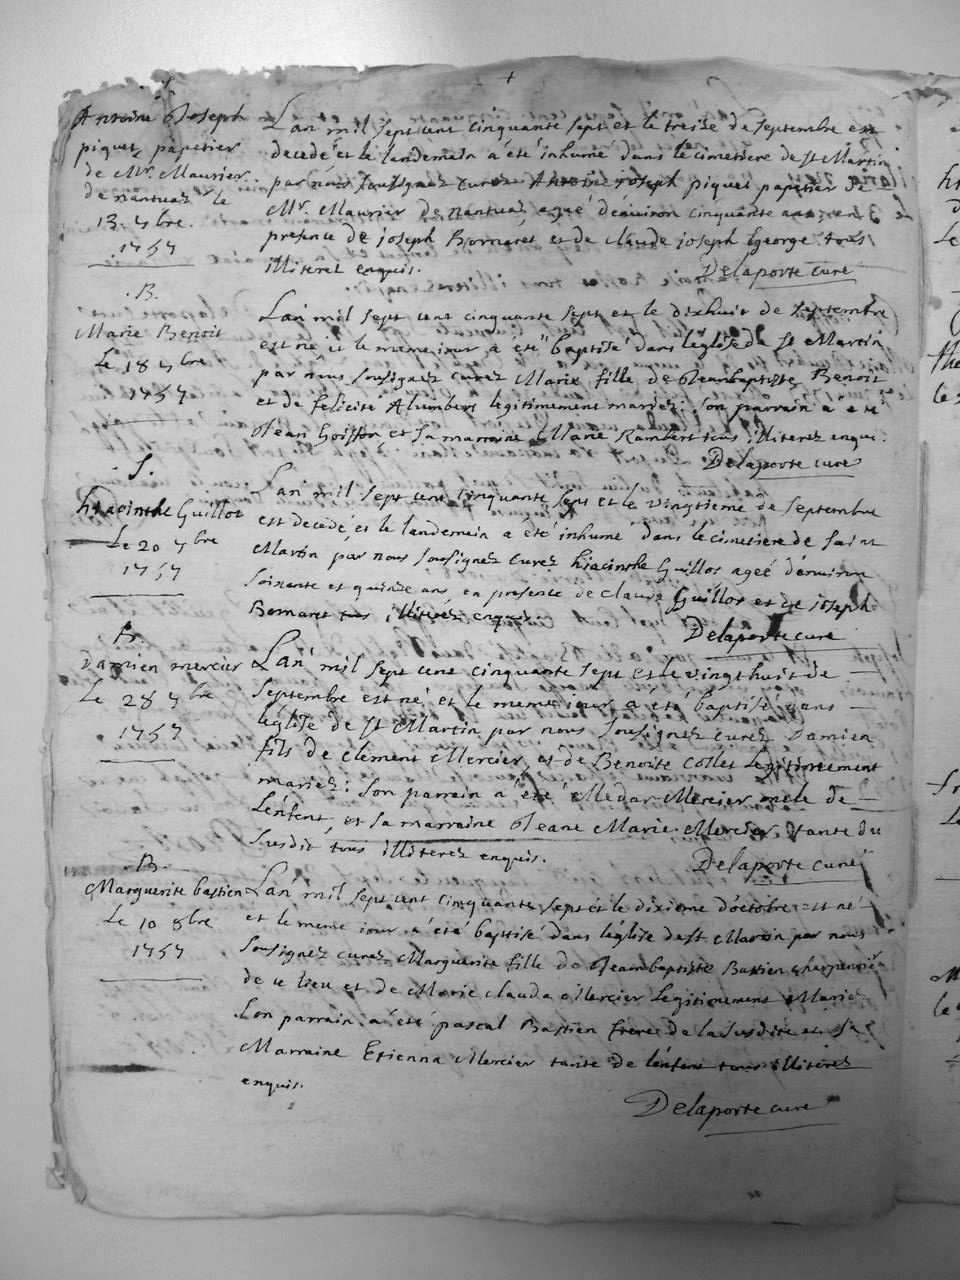 Antoine Joseph
piquet, papetier
de Mr. Maurier
de nantuaz le
13. 7bre.
1757
Lan mil sept cent cinquante sept et le treize de septembre est
decedé et le landemain a été inhumé dans le cimetiere de st Martin
par nous soussignez curez Antoine joseph piquet papetier de
Mr. Maurier de nantuaz, agé d'environ cinquante ans, en
presence de joseph Bornaret et de claude joseph George tous
illiterez enquis.
Delaporte curé
B.
Marie Benoit
Le 18 7bre
1757
Lan mil sept cent cinquante sept et le dixhuit de septembre
est né et le meme jour a été baptisé dans l'église de st Martin
par nous soussignez curez Marie fille de Jeanbaptiste Benoit
et de felicité Alumbert legitimement mariez: son parrain a été
Jean Goiffon, et sa marraine Marie Rambert tous illiterez enquis.
Delaporte curé
S.
hiacinthe Guillot
Le 20 7bre
1757
Lan mil sept cent cinquante sept et le vingtieme de septembre
est decedé, et le landemain a été inhumé dans le cimetiere de saint
Martin par nous soussignez curez hiacinthe Guillot ageé d'environ
soixante et quinze ans, en presence de claude Guillot et de joseph
Bornaret tous illiterez enquis.
Delaporte curé
B.
Damien mercier
Le 28 7bre
1757
Lan mil sept cent cinquante sept et le vingthuit de
septembre est né, et le meme jour a été baptisé dans
l'église de st Martin par nous soussignez curez Damien
fils de clement Mercier, et de Benoite Collet Legitimement
mariez: son parrain a été Médar Mercier, oncle de
L'enfent, et sa marraine Jeane Marie Mercier, tante du
susdit tous illiterez enquis.
Delaporte curé
B.
Marguerite bastien
Le 10 8bre
1757
Lan mil sept cent cinquante sept et le dixieme d'octobre est né
et le meme jour a été baptisé dans l'eglise de st Martin par nous
soussignez curez Marguerite fille de Jeambaptiste Bastien charpentié
de ce lieu et de Marie clauda Mercier Legitimement Mariez
Son parrain a été pascal Bastien frere de la susdite et sa
Marraine Etienna Mercier tante de lenfent tous illiterez
enquis.
Delaporte curé